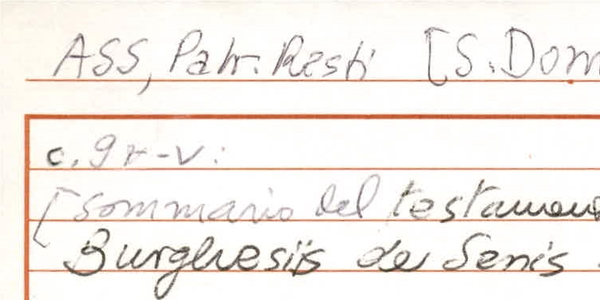 ASS, Patr. Resti [S. Dom
c. 9r-v:
[sommario del testamen
Burghesiis de Senis